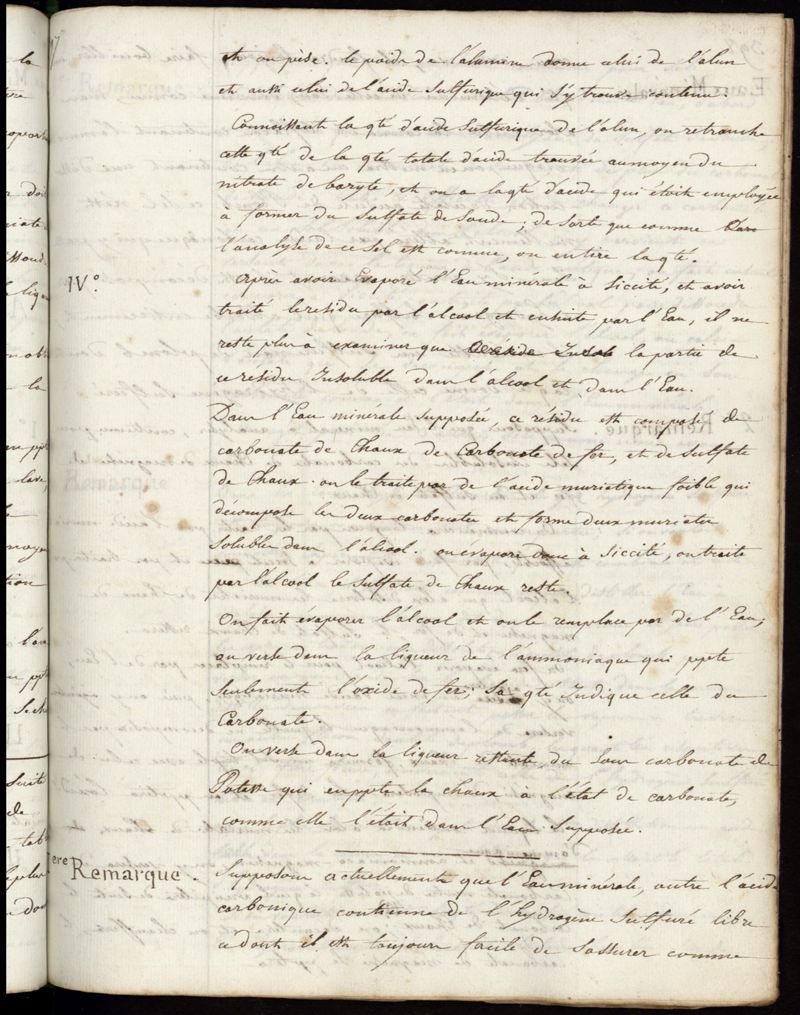 et on pèse. le poids de l'alumine donne celui de l'alun
et aussi celui de l'acide Sulfurique qui s'y trouve contenu.
Connoissant la qté d'acide Sulfurique de l'alun, on retranche
cette qté de la qté totale d'acide trouvée au moyen du
nitrate de baryte, et on a la qté d'acide qui étoit employée
à former du Sulfate de Soude; de sorte que comme
l'analyse de ce Sel est connue, on en tire la qté.
IV°.
après avoir Evaporé l'Eau minérale à Siccité, et avoir
traité le residu par l'alcool et ensuite par l'Eau, il ne
reste plus à examiner que la partie de
ce residu Insoluble dans l'alcool et dans l'Eau.
Dans l'Eau minérale supposée, ce résidu est composé de
carbonate de Chaux de Carbonate de fer, et de Sulfate
de Chaux. on le traite par de l'acide muriatique foible qui
décompose les deux carbonates et forme deux muriates
Soluble dans l'alcool. on évapore donc à Siccité, on traite
par l'alcool le Sulfate de Chaux reste.
On fait évaporer l'alcool et on le remplace par de l'Eau;
on verse dans la liqueur de l'ammoniaque qui ppte
Seulement l'oxide de fer; Sa qté Indique celle du
Carbonate.
On verse dans la liqueur restante du Sous carbonate de
Potasse qui en ppte la chaux à l'état de carbonate,
comme elle l'était dans l'Eau Supposée.
1ere Remarque.
Supposons actuellement que l'Eau minérale, outre l'acide
carbonique contienne de l'hydrogène Sulfuré libre
ce dont il est toujours facile de s'assurer comme